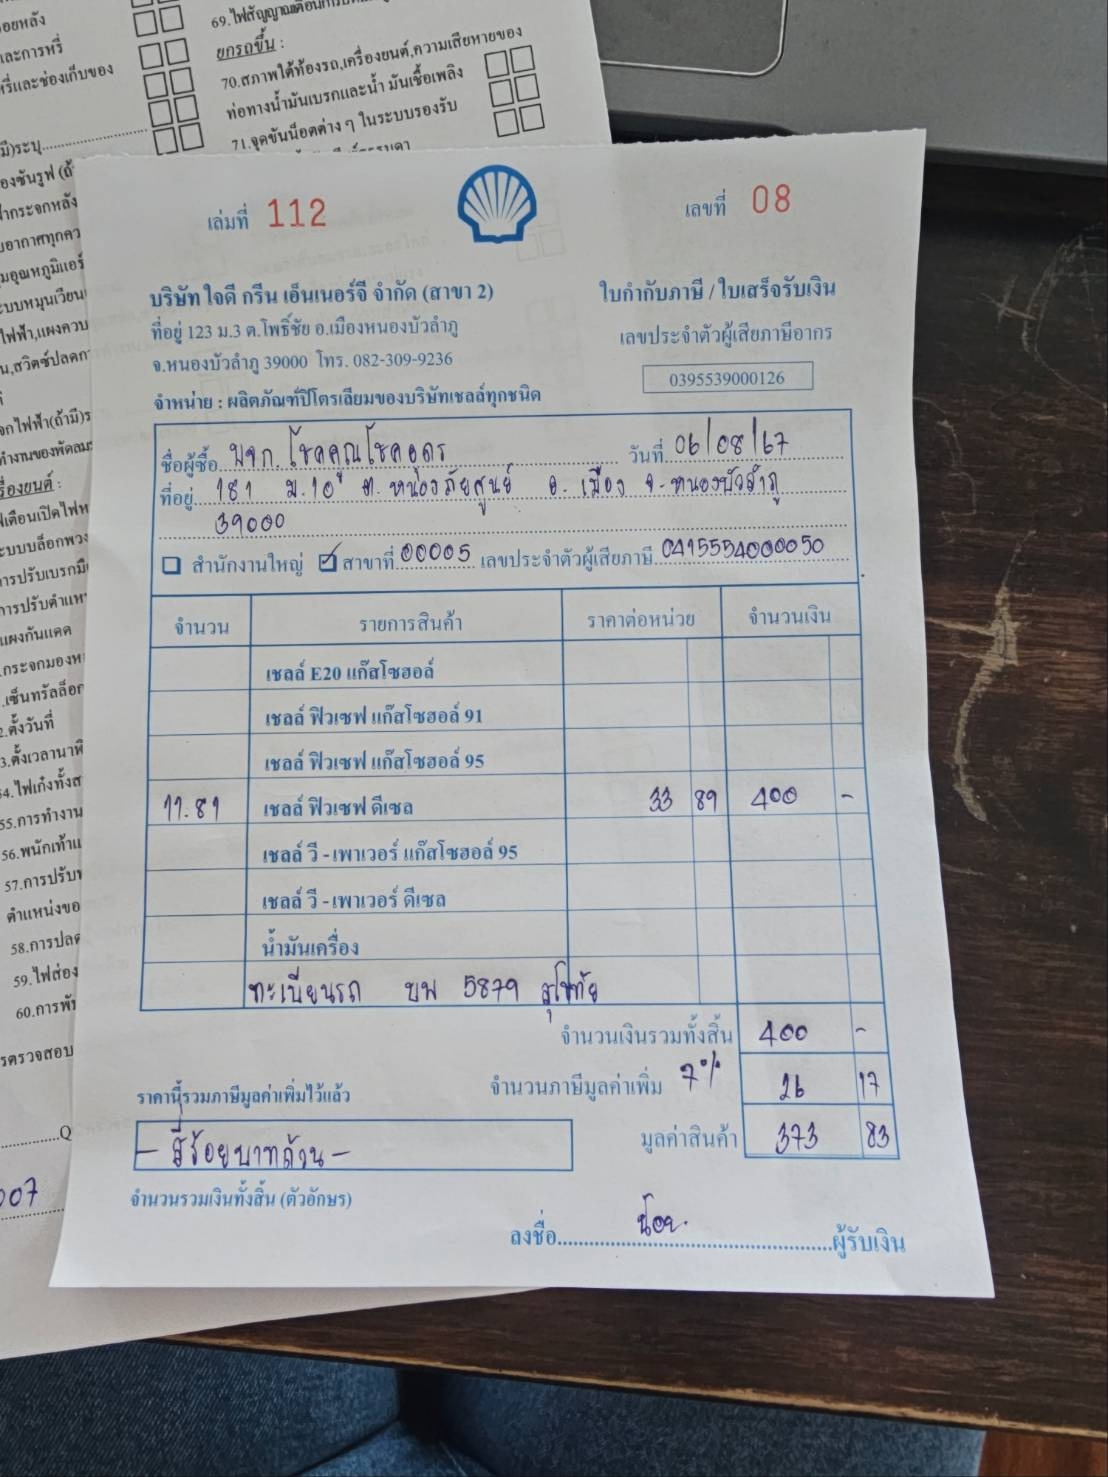 อยหลัง
และการหรี่
รี่และช่องเก็บของ
มี)ระบุ
69.ไฟสัญญาณเตือน
ยกรถขึ้น :
70.สภาพใต้ท้องรถ,เครื่องยนต์,ความเสียหายของ
ท่อทางน้ำมันเบรกและน้ำ มันเชื้อเพลิง
71.จุดขันน็อตต่าง ๆ ในระบบรองรับ
เล่มที่ 112
เลขที่ 08
บริษัท ใจดี กรีน เอ็นเนอร์จี จำกัด (สาขา 2)
ใบกำกับภาษี / ใบเสร็จรับเงิน
ที่อยู่ 123 ม.3 ต.โพธิ์ชัย อ.เมืองหนองบัวลำภู
เลขประจำตัวผู้เสียภาษีอากร
จ.หนองบัวลำภู 39000 โทร. 082-309-9236
0395539000126
จำหน่าย : ผลิตภัณฑ์ปิโตรเลียมของบริษัทเชลล์ทุกชนิด
ชื่อผู้ซื้อ หจก. โชคคูณโชคอุดร วันที่ 06/08/67
ที่อยู่ 181 ม.10 ต.หนองภัยศูนย์ อ.เมือง จ.หนองบัวลำภู
39000
สำนักงานใหญ่ ☑ สาขาที่ 00005 เลขประจำตัวผู้เสียภาษี 0415554000050
จำนวน รายการสินค้า ราคาต่อหน่วย จำนวนเงิน
เชลล์ E20 แก๊สโซฮอล์
เชลล์ ฟิวเซฟ แก๊สโซฮอล์ 91
เชลล์ ฟิวเซฟ แก๊สโซฮอล์ 95
11.81 เชลล์ ฟิวเซฟ ดีเซล 33 89 400 -
เชลล์ วี - เพาเวอร์ แก๊สโซฮอล์ 95
เชลล์ วี - เพาเวอร์ ดีเซล
น้ำมันเครื่อง
ทะเบียนรถ บพ 5879 สุโขทัย
จำนวนเงินรวมทั้งสิ้น 400 -
ราคานี้รวมภาษีมูลค่าเพิ่มไว้แล้ว
จำนวนภาษีมูลค่าเพิ่ม 7% 26 17
มูลค่าสินค้า 373 83
- สี่ร้อยบาทถ้วน -
จำนวนรวมเงินทั้งสิ้น (ตัวอักษร)
ลงชื่อ น้อย ผู้รับเงิน